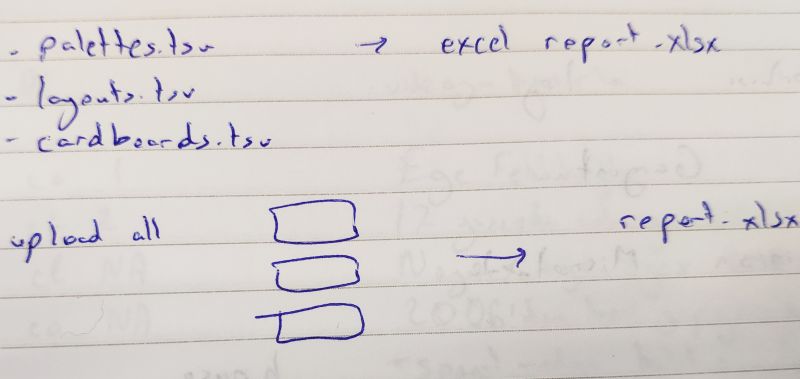 - palettes.tsv → excel report.xlsx
- layouts.tsv
- cardboards.tsv
upload all → report.xlsx